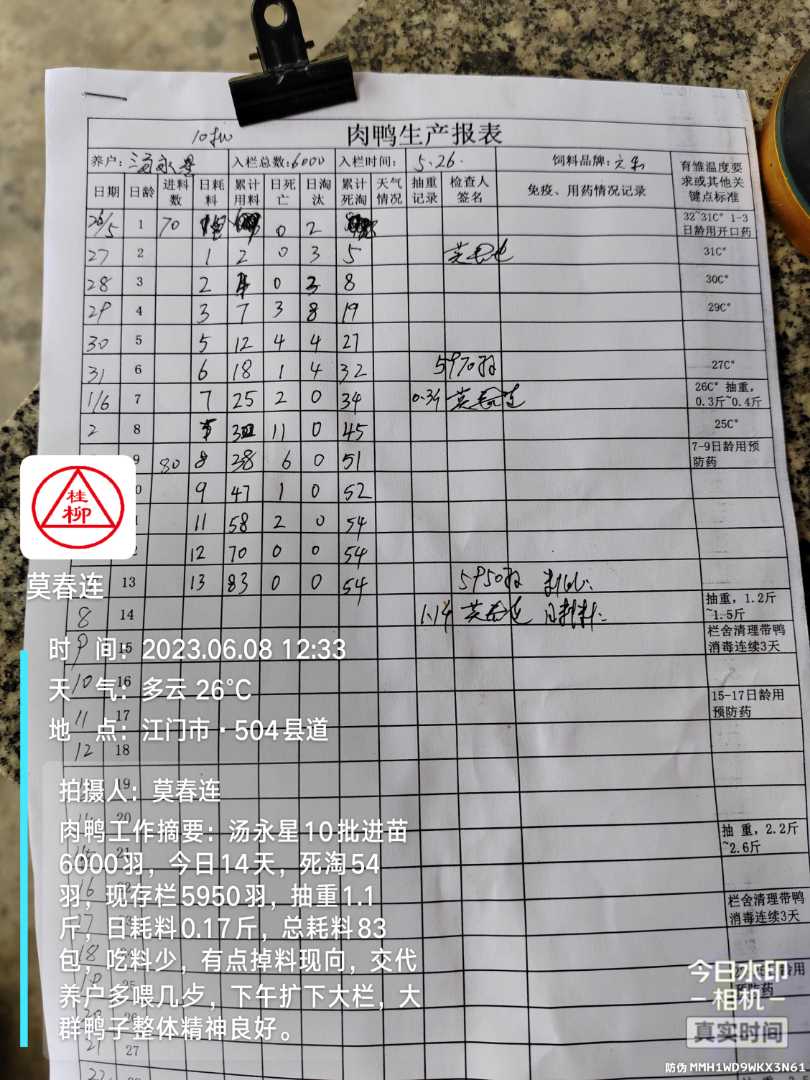 10批
肉鸭生产报表
养户: 汤永星 入栏总数:6000 入栏时间: 5.26. 饲料品牌: 育雏温度要求或其他关键点标准
日期 日龄 进料数 日耗料 累计用料 日死亡 日淘汰 累计死淘 天气情况 抽重记录 检查人签名 免疫、用药情况记录
26/5 1 70 0 2 32~31C° 1-3日龄用开口药
27 2 1 2 0 3 5 31C°
28 3 2 0 3 8 30C°
29 4 3 7 3 8 19 29C°
30 5 5 12 4 4 27
31 6 6 18 1 4 32 5970羽 27C°
1/6 7 7 25 2 0 34 0.34 莫春连 26C° 抽重,0.3斤~0.4斤
2 8 11 0 45 25C°
9 80 8 38 6 0 51 7-9日龄用预防药
0 9 47 1 0 52
11 58 2 0 54
2 12 70 0 0 54
13 13 83 0 0 54 5950羽
8 14 1.14 莫春连 抽重,1.2斤~1.5斤
9 15 栏舍清理带鸭消毒连续3天
10 16 15-17日龄用预防药
11 17
12 18
19
20
21 抽重,2.2斤~2.6斤
16
17 栏舍清理带鸭消毒连续3天
18
龄用预防药
21 27
22
桂柳
莫春连
时 间: 2023.06.08 12:33
天 气: 多云 26℃
地 点: 江门市·504县道
拍摄人: 莫春连
肉鸭工作摘要: 汤永星10批进苗
6000羽，今日14天，死淘54
羽，现存栏5950羽，抽重1.1
斤，日耗料0.17斤，总耗料83
包，吃料少，有点掉料现向，交代
养户多喂几歺，下午扩下大栏，大
群鸭子整体精神良好。
今日水印
相机
真实时间
防伪 MMH1WD9WKX3N61